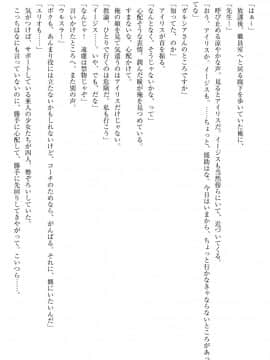 「はぁ……」
放課後、職員室へと戻る廊下を歩いていた俺に、
「先生！」
呼び止める涼やかな声。見るとアイリスだった。イージスも当然傍らにいて、近づいてくる。
「おう、アイリスか、イージスも。……ちょっと、援助はな、今日はいまから、ちょっと行かなきゃならないところがあっ
て」
「ガルシアさんのところ、ですか」
「知ってた、のか」
アイリスが首を振る。
「なんとなく、そうじゃないかな、って」
心配そうな表情。潤んだ瞳が俺を見つめている。
俺の顔を見て気遣うのはアイリスだけじゃない。
「ひとりで行くのは危険だ。私も行こう」
「イージス……いや、でも、だな」
「コーネ？　遠慮は禁物じゃぞ」
言いかけたところへ、また別の声。
「ウルスラ！」
「ボクも、あんまり役には立たないかもしれないけど、コーネのためなら、がんばる。それに、側にいたいんだ」
「ユリオも……！」
気がつけば、サポートしている亜人の少女たちが四人、勢ぞろいしていた。
こっちはなにも言っていないのに、勝手に心配して、勝手に先回りしてきやがって、こいつら……。